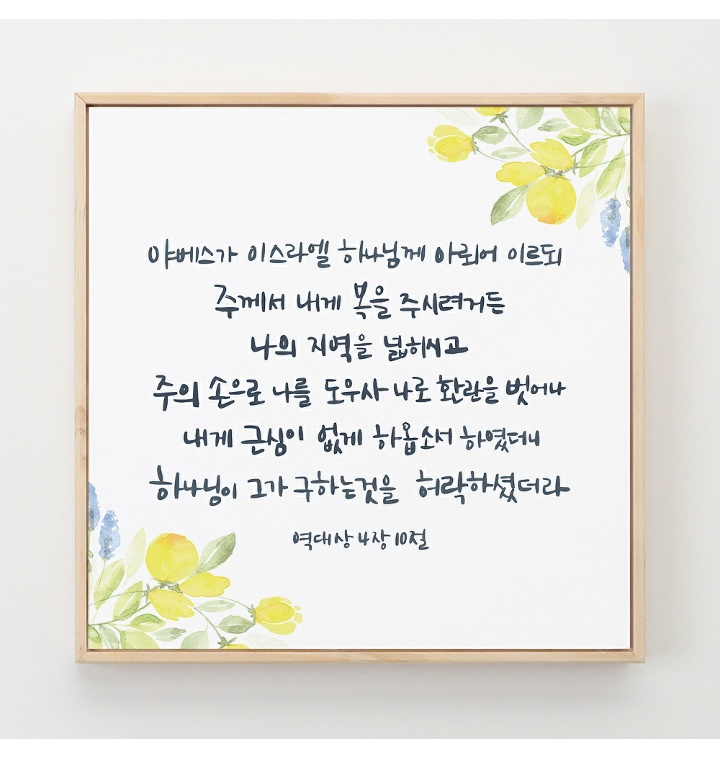 야베스가 이스라엘 하나님께 아뢰어 이르되
주께서 내게 복을 주시려거든
나의 지역을 넓히시고
주의 손으로 나를 도우사 나로 환란을 벗어나
내게 근심이 없게 하옵소서 하였더니
하나님이 그가 구하는것을 허락하셨더라
역대상 4장 10절